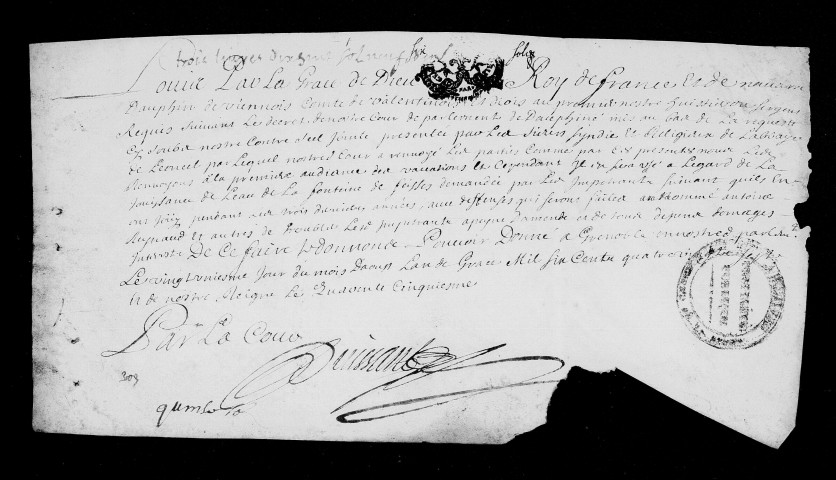 trois livres dix sept sols
Louis Par La Grace de Dieu Roy de france Et de navarre
dauphin de viennois Comte de valentinois et diois au premier nostre huissier ou sergent
Requis Suivant Le decret de nostre Cour de parlement de dauphiné mis au bas de La requeste
Cy soubz nostre Contre seel Jointe presentée par Les Sieurs Syndic et Religieux de Labbaye
de Leoncel par Lequel nostre Cour a renvoyé Les parties Comme par Ces presentes nous Les
Renvoyons a la premiere audiance des vacations et Cependant Il en sera usé a Legard de La
Jouissance de Leau de La fontaine de demandée par Les Impetrants suivant quils En
ont Joüy pendant Les trois dernieres années, avec deffenses qui seront faites au nommé antoine
Reynaud et autres de troubler Lesd Impetrants a peyne damende et de tous depens domages
Interests De Ce faire te donnons Pouvoir Donné a Grenoble en nostred parlemt
Le vingt uniesme Jour du mois Daoust Lan de Grace Mil Six Cents quatre vingt
Et de nostre Reigne Le Quarente Cinquiesme
Par La Cour
303